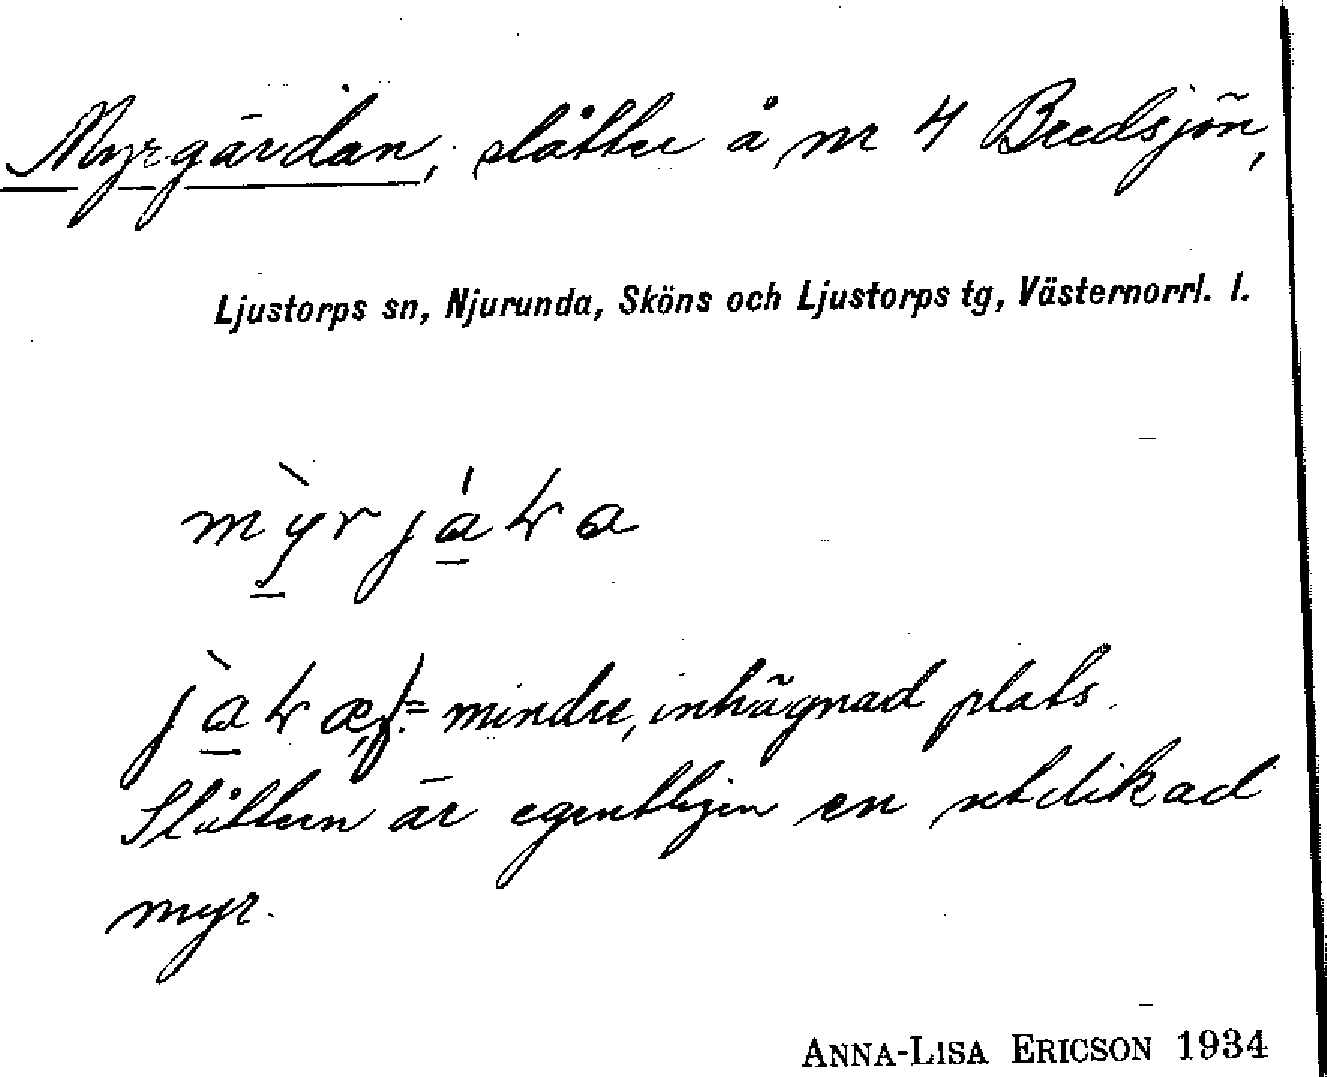 Myrgärdan, slåtter å nr 4 Bredsjön,
Ljustorps sn, Njurunda, Sköns och Ljustorps tg, Västernorrl. l.
mindre, inhägnad plats.
Slåttern är egentligen en utdikad
myr.
ANNA-LISA ERICSON 1934